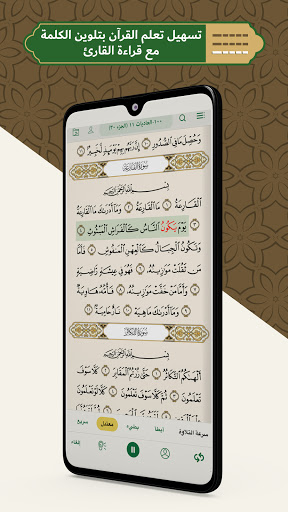 تسهيل تعلم القرآن بتلوين الكلمة
مع قراءة القارئ
١٠٠-العاديات ١١ (الجزء ٣٠)
وَحُصِّلَ مَا فِي ٱلصُّدُورِ ١٠ إِنَّ رَبَّهُم بِهِمۡ يَوۡمَئِذٖ لَّخَبِيرُۢ ١١
سُورَةُ القَارِعَةِ
بِسۡمِ ٱللَّهِ ٱلرَّحۡمَٰنِ ٱلرَّحِيمِ
ٱلۡقَارِعَةُ ١ مَا ٱلۡقَارِعَةُ ٢ وَمَآ أَدۡرَىٰكَ مَا ٱلۡقَارِعَةُ ٣
يَوۡمَ يَكُونُ ٱلنَّاسُ كَٱلۡفَرَاشِ ٱلۡمَبۡثُوثِ ٤
وَتَكُونُ ٱلۡجِبَالُ كَٱلۡعِهۡنِ ٱلۡمَنفُوشِ ٥ فَأَمَّا
مَن ثَقُلَتۡ مَوَٰزِينُهُۥ ٦ فَهُوَ فِي عِيشَةٖ رَّاضِيَةٖ
٧ وَأَمَّا مَنۡ خَفَّتۡ مَوَٰزِينُهُۥ ٨ فَأُمُّهُۥ هَاوِيَةٞ
٩ وَمَآ أَدۡرَىٰكَ مَا هِيَهۡ ١٠ نَارٌ حَامِيَةُۢ ١١
سُورَةُ التَّكَاثُرِ
بِسۡمِ ٱللَّهِ ٱلرَّحۡمَٰنِ ٱلرَّحِيمِ
أَلۡهَىٰكُمُ ٱلتَّكَاثُرُ ١ حَتَّىٰ زُرۡتُمُ ٱلۡمَقَابِرَ ٢ كَلَّا سَوۡفَ
تَعۡلَمُونَ ٣ ثُمَّ كَلَّا سَوۡفَ تَعۡلَمُونَ ٤ كَلَّا لَوۡ تَعۡلَمُونَ
سرعة التلاوة أبطأ بطيء معتدل سريع
إلغاء